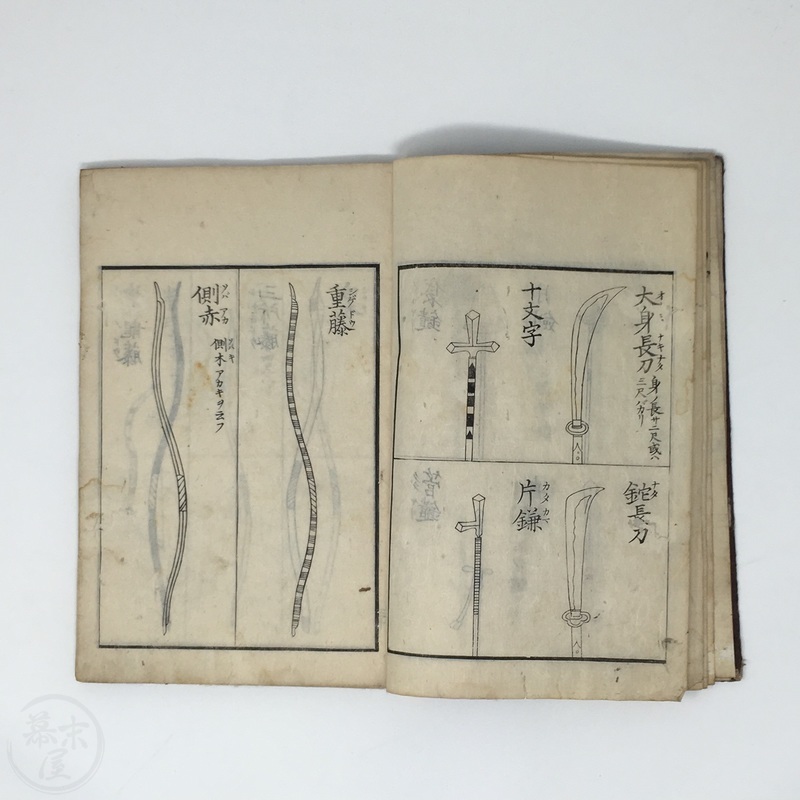 大身長刀
オヽミ ナギナタ
身ノ長サ二尺或ハ
三尺バカリ
十文字
鉈長刀
ナタ
片鎌
カタカマ
重藤
シゲドウ
側赤
ソバアカ
側木アカキヲ云フ
幕末屋